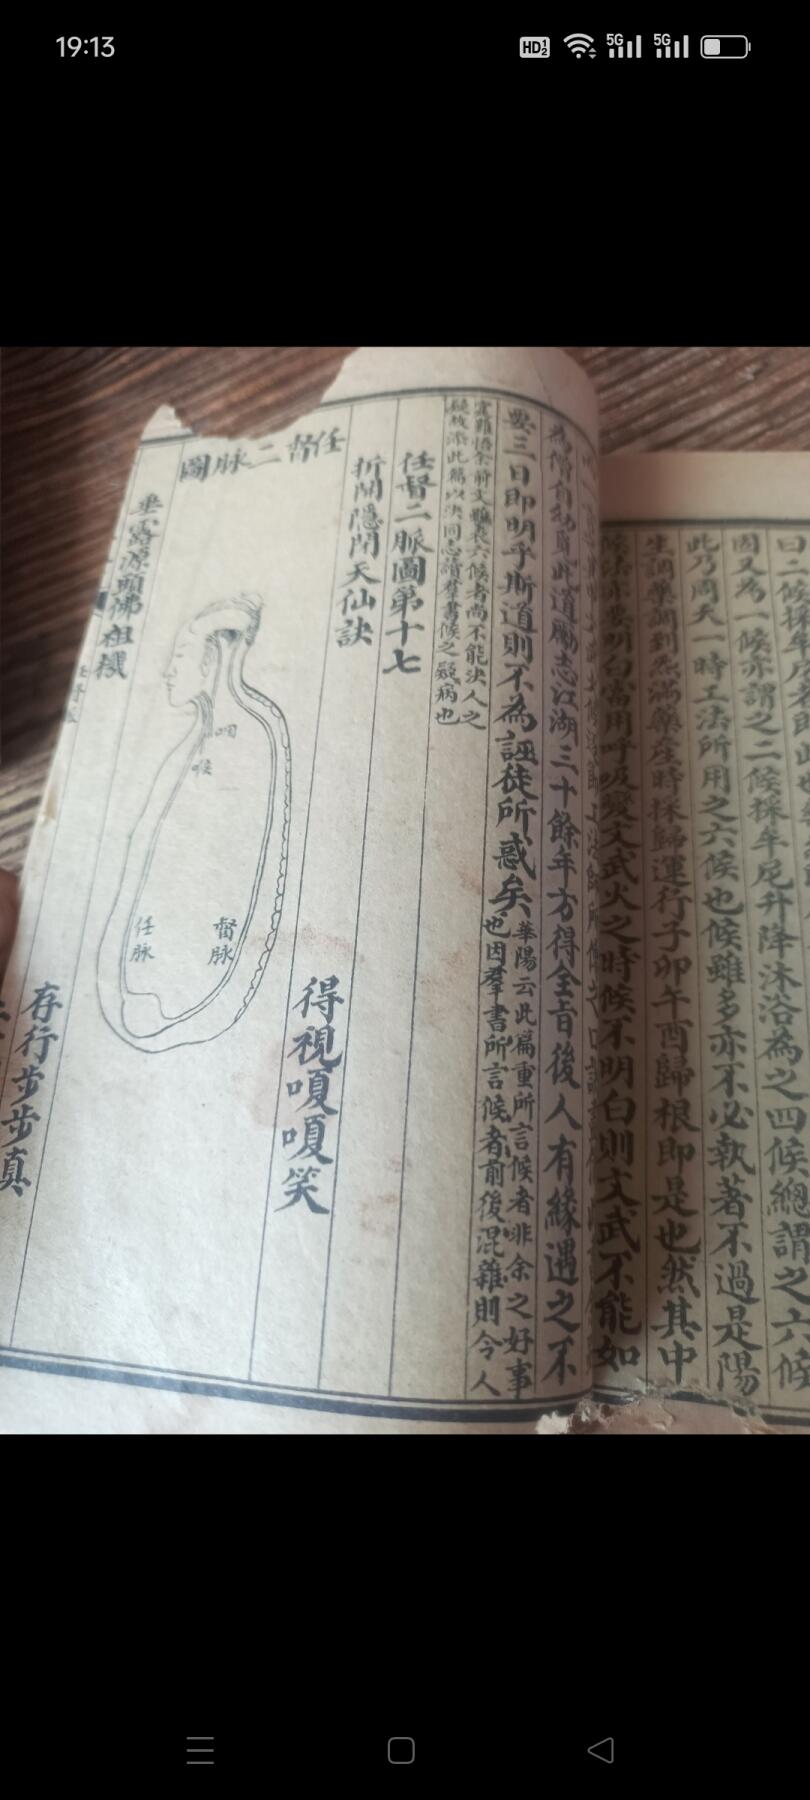 19:13
曰二候採牟尼
因又為一候亦謂之二候採牟尼升降沐浴為之四候總謂之六候
此乃周天一時工法所用之六候也候雖多亦不必執著不過是陽
生調藥調到藥產時採歸運行子卯午酉歸根即是也然其中
明白當用呼吸變文武火之時候不明白則文武不能如
為僧自幼負此道勵志江湖三十餘年方得全旨後人有緣遇之不
要三日即明乎斯道則不為誣徒所惑矣
華陽云此篇重所言候者非余之好事
也因群書所言候者前後混雜則令人
余前文雖表六候者尚不能決人之
疑故添此篇以決同志讀群書候之疑病也
任督二脈圖第十七
折開隱閉天仙訣
得視嗄嗄笑
任督二脈圖
咽
喉
督脈
任脈
垂露源頭佛祖機
存行步步真